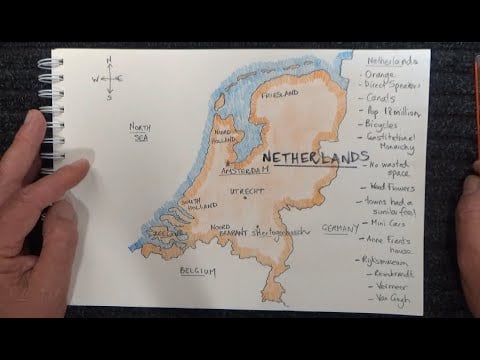 N
W E
S
NORTH
SEA
FRIESLAND
NOORD
HOLLAND
AMSTERDAM
NETHERLANDS
UTRECHT
SOUTH
HOLLAND
ZEELAND
NOORD
BRABANT
sHertogenbosch
GERMANY
BELGIUM
Netherlands
- Orange
- Direct Speakers
- Canals
- Pop 17 million
- Bicycles
- Constitutional
Monarchy
- No wasted
space
- Wood Flowers
- towns had a
similar feel
- Mini Cars
- Anne Frank's
house
- Rijksmuseum
- Rembrandt
- Vermeer
- Van Gogh